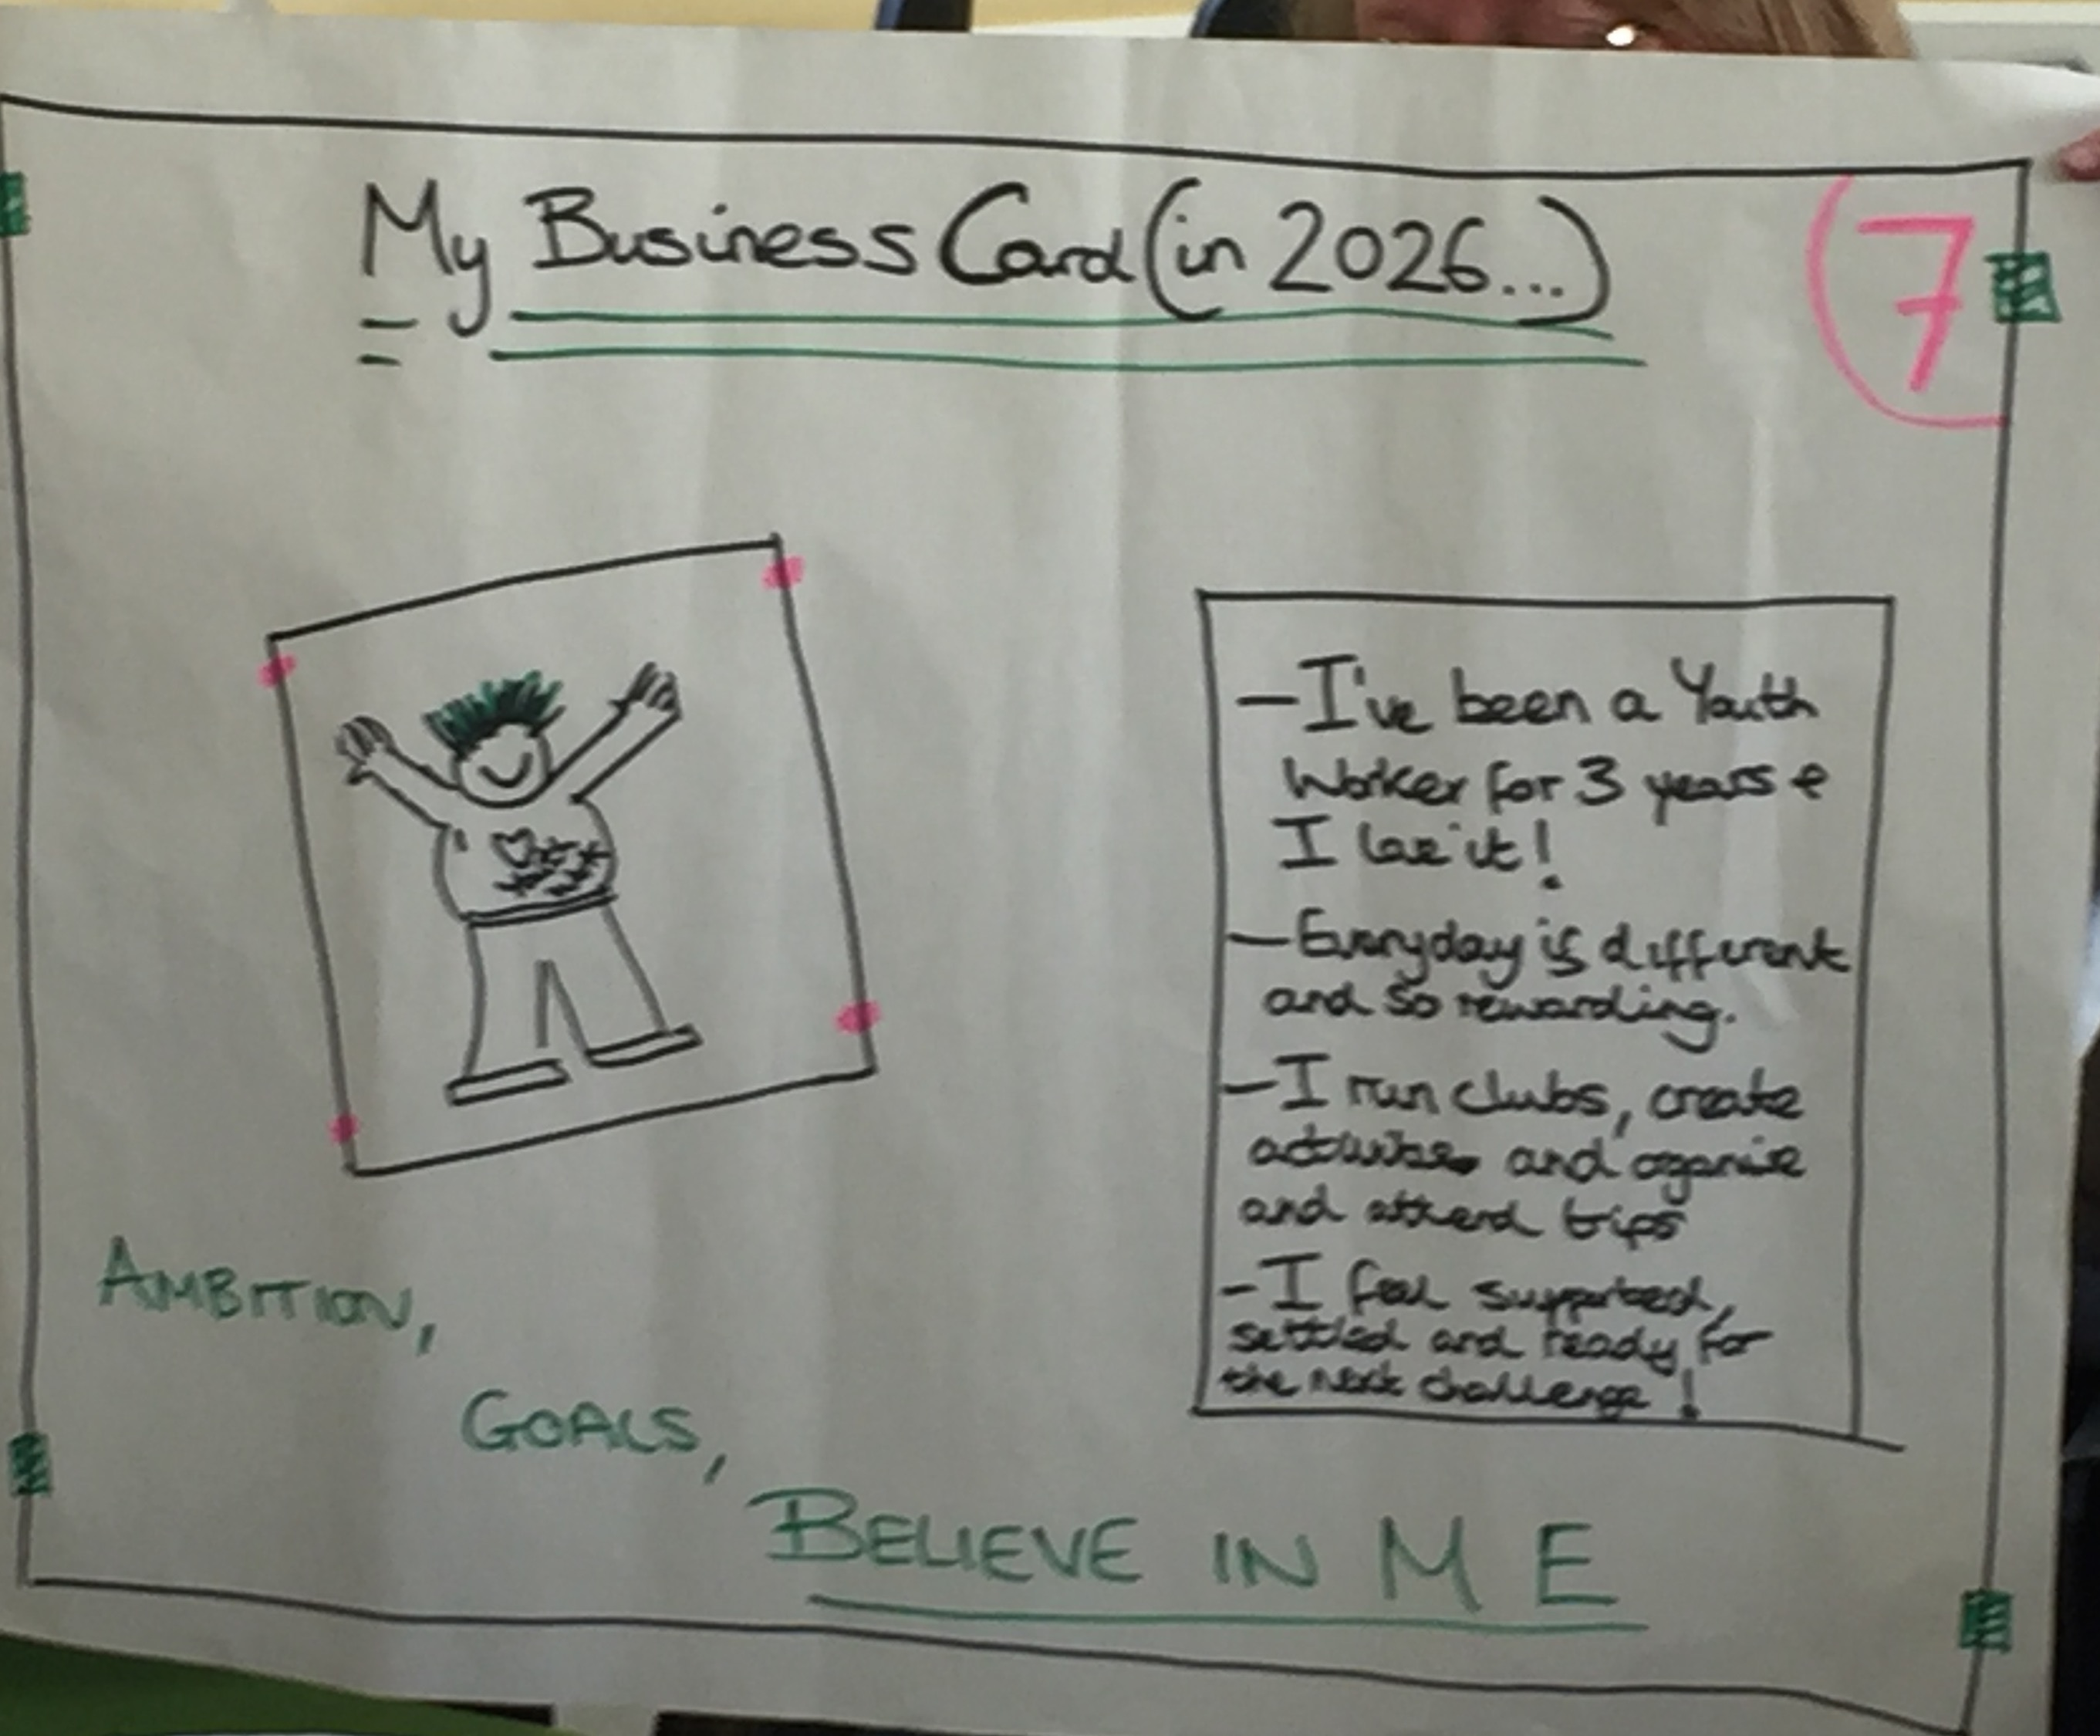 My Business Card (in 2026...)
7
- I've been a Youth
Worker for 3 years &
I love it!
- Everyday is different
and so rewarding.
- I run clubs, create
activities and organise
and attend trips
- I feel supported,
settled and ready for
the next challenge!
AMBITION,
GOALS,
BELIEVE IN ME